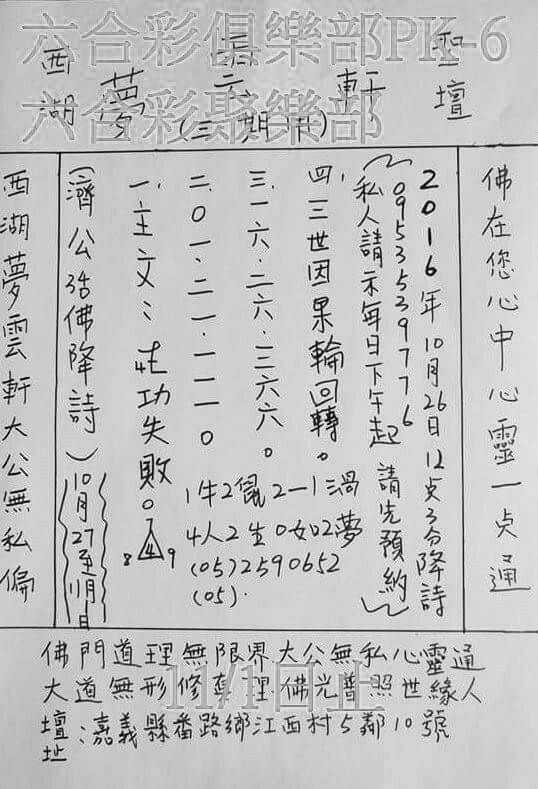 六合彩俱樂部PK-6
西湖 夢雲軒 聖壇
六合彩聚樂部
(三期用)
佛在您心中心靈一点通
2016年10月26日12点3分降詩
0953539776
私人請示每日下午起 請先預約
四.三世因果輪回轉。
三.一六.二六.三六六。
二.0一.二一.一一一0
一.主文:壯功失敗。
8 4 9
1牛2鼠2一1渦
4人2生0女口2夢
(05)2590652
(05).
(濟公活佛降詩)
10月27至11月1日
西湖夢雲軒大公無私偏
佛門道理無限界大公無私心靈通
大道無形修真理佛光普照世緣人
11/1日止
壇址:嘉義縣番路鄉江西村5鄰10號